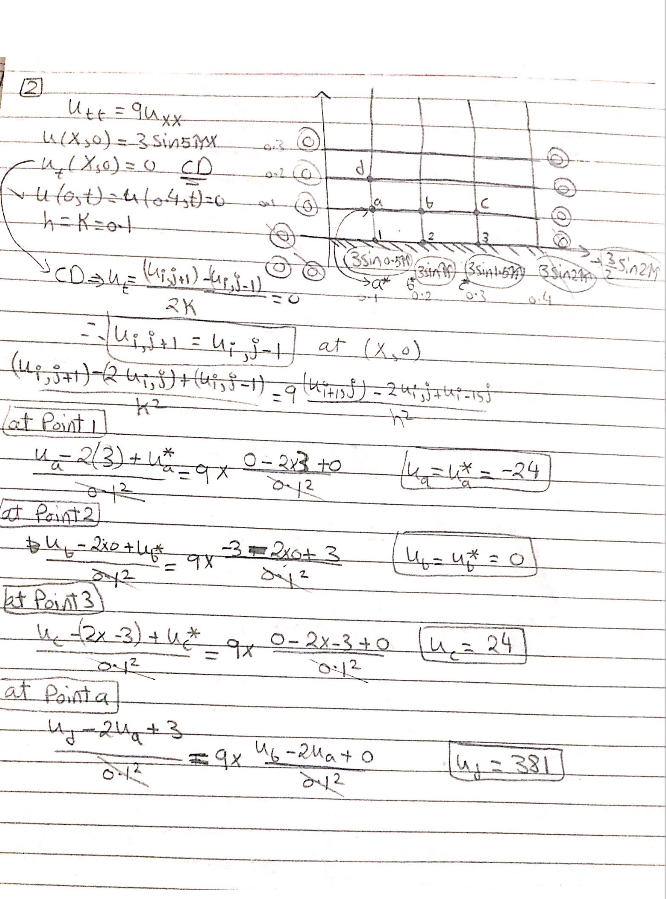 2
u_tt = 9u_xx
u(x,0) = 3 sin5πx
u_t(x,0) = 0 CD
u(0,t) = u(0.4,t) = 0
h = K = 0.1
0.3 0 0
0.2 0 d 0
0.1 0 a b c 0
0 1 2 3 0
0 0 3sin0.5π 3sinπ 3sin1.5π 3sin2π
a* b* c*
.1 0.2 0.3 0.4
CD ⇒ u_t = (u_i,j+1) - (u_i,j-1) / 2K = 0
∴ u_i,j+1 = u_i,j-1 at (x,0)
(u_i,j+1) - (2u_i,j) + (u_i,j-1) / k² = 9 (u_i+1,j) - 2u_i,j + u_i-1,j / h²
at Point 1
u_a - 2(3) + u_a* / 0.1² = 9 x 0 - 2x3 + 0 / 0.1² u_a = u_a* = -24
at Point 2
u_b - 2x0 + u_b* / 0.1² = 9x -3 - 2x0 + 3 / 0.1² u_b = u_b* = 0
at Point 3
u_c - (2x -3) + u_c* / 0.1² = 9x 0 - 2x-3 + 0 / 0.1² u_c = 24
at Point a
u_d - 2u_a + 3 / 0.1² = 9x u_b - 2u_a + 0 / 0.1² u_d = 381